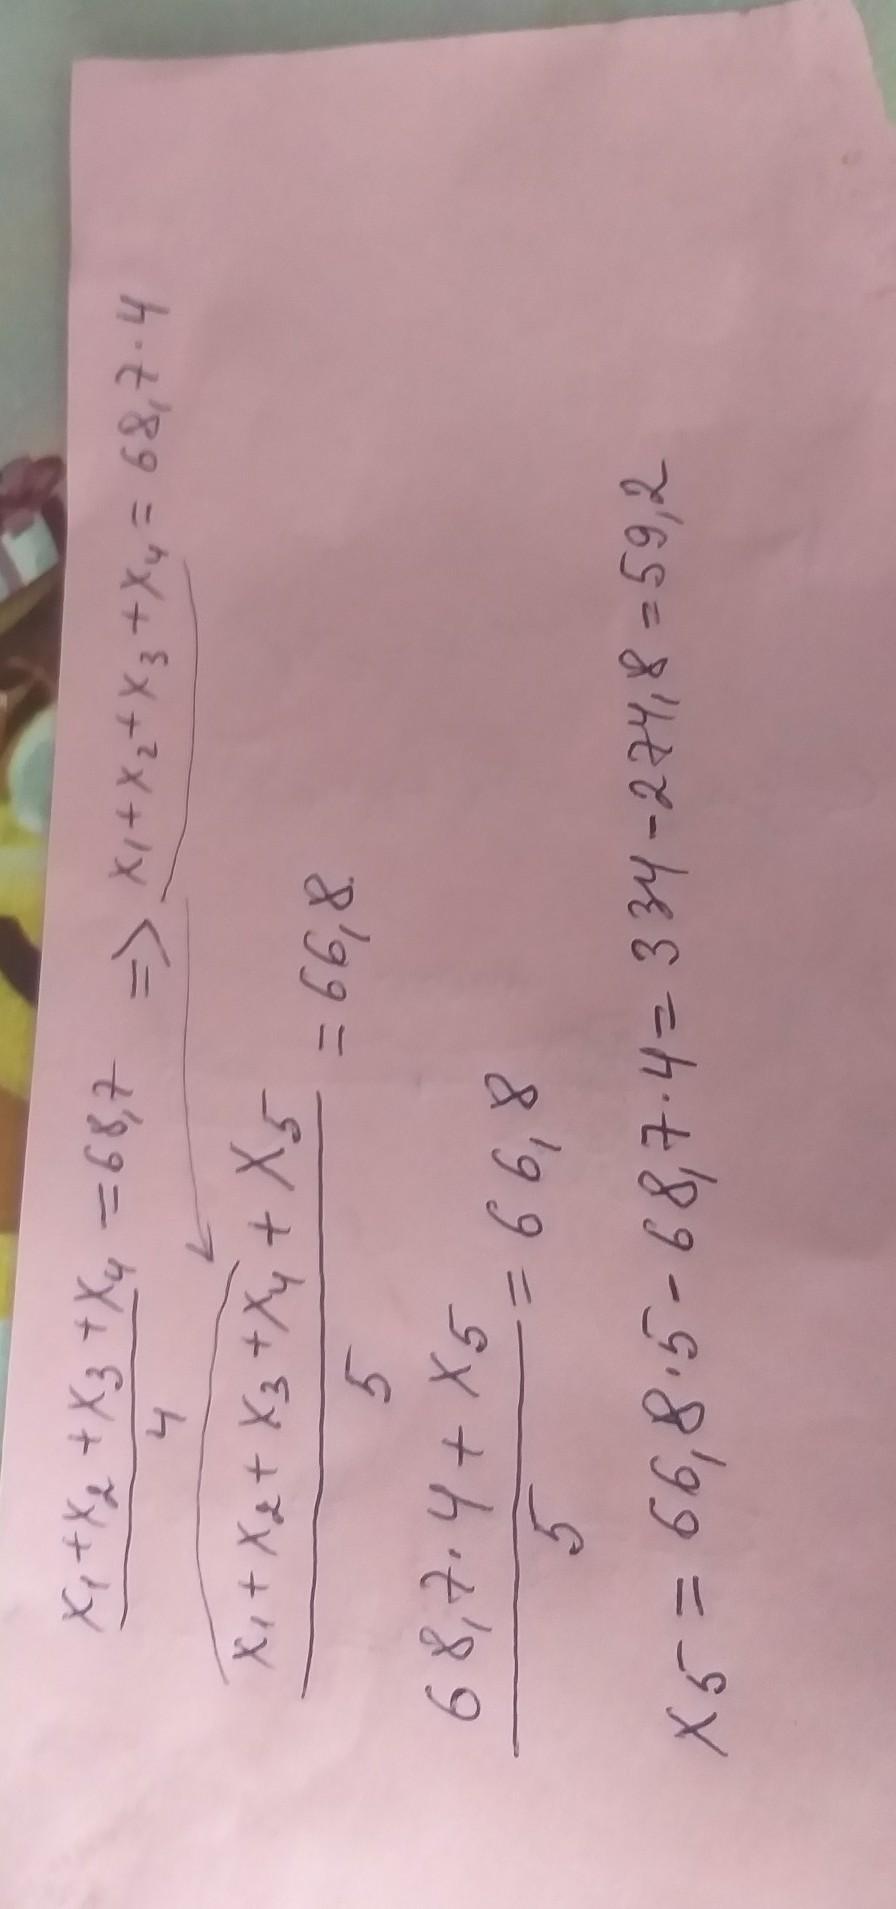 x1+x2+x3+x4/4 = 68,7 => x1+x2+x3+x4 = 68,7·4
x1+x2+x3+x4+x5/5 = 66,8
68,7·4+x5/5 = 66,8
x5 = 66,8·5-68,7·4 = 334-274,8 = 59,2